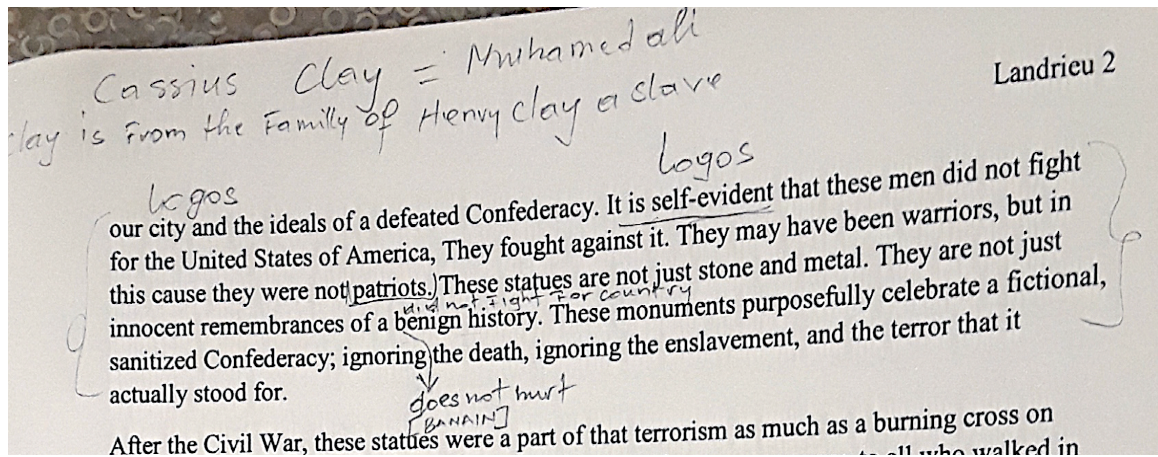 Cassius Clay = Muhamed ali
Landrieu 2
clay is from the Familly of Henry Clay a slave
Logos
Logos
our city and the ideals of a defeated Confederacy. It is self-evident that these men did not fight
for the United States of America, They fought against it. They may have been warriors, but in
this cause they were not patriots. These statues are not just stone and metal. They are not just
did not fight for country
innocent remembrances of a benign history. These monuments purposefully celebrate a fictional,
sanitized Confederacy; ignoring the death, ignoring the enslavement, and the terror that it
actually stood for.
does not hurt
[BANAIN]
After the Civil War, these statues were a part of that terrorism as much as a burning cross on
to all who walked in